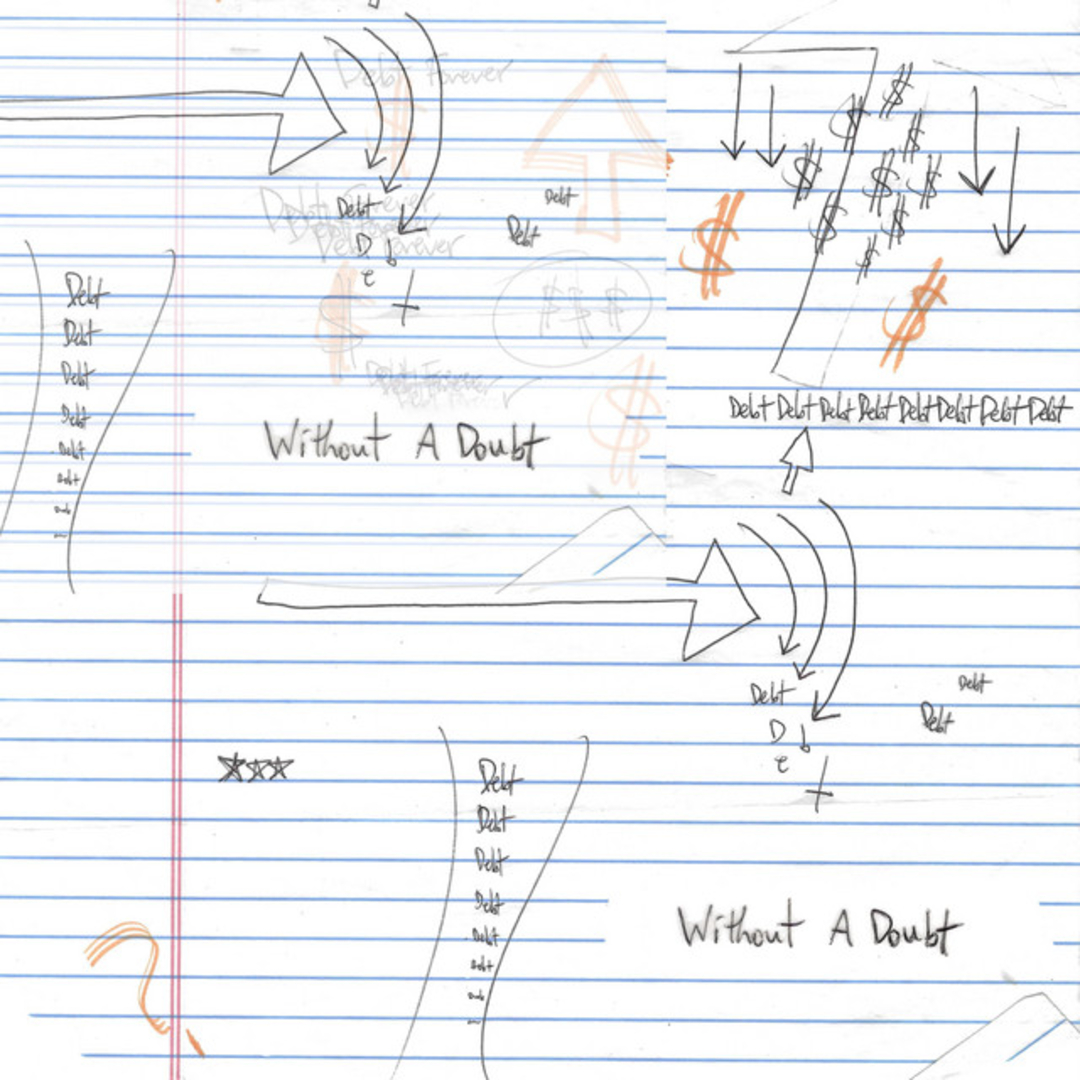 Debt Forever
$
$
Debt
Debt Forever
Debt
Debt
D b
e t
$ $ $
$
$
Debt
Debt
Debt
Debt
Debt
Debt
Debt Forever
Without A Doubt
$
$ $ $ $ $ $ $ $ $ $
$
$
Debt Debt Debt Debt Debt Debt Debt Debt
Debt
Debt
Debt
D b
e t
Debt
Debt
Debt
Debt
Debt
Debt
Without A Doubt
?